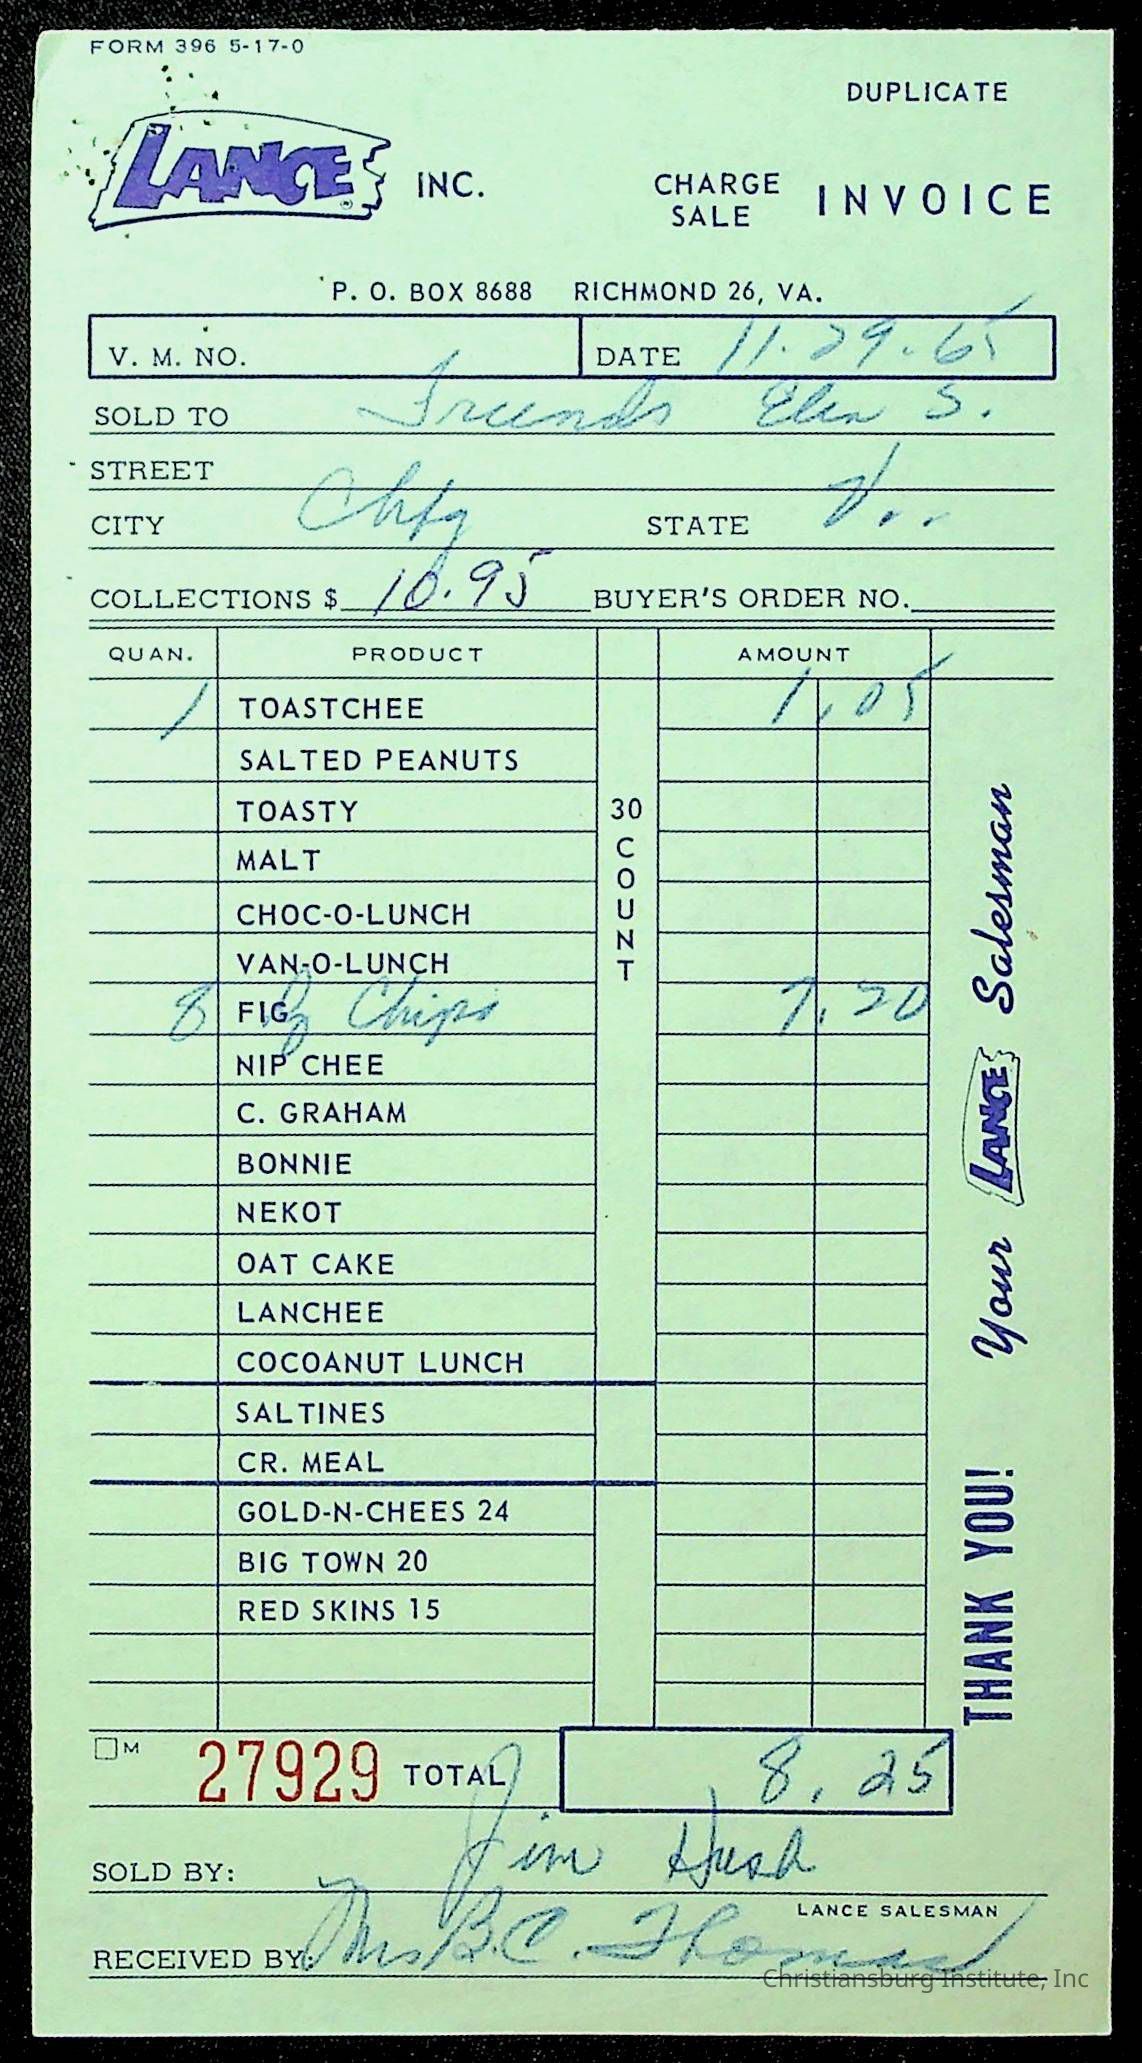 FORM 396 5-17-0
DUPLICATE
LANCE ® INC.
CHARGE SALE INVOICE
P. O. BOX 8688 RICHMOND 26, VA.
V. M. NO. DATE 11.29.65
SOLD TO Friends Elem S.
STREET
CITY Chfg STATE V..
COLLECTIONS $ 10.95 BUYER'S ORDER NO.
QUAN. PRODUCT AMOUNT
1 TOASTCHEE 1.05
SALTED PEANUTS
TOASTY
MALT
CHOC-O-LUNCH
VAN-O-LUNCH
8 FIG Chips 7.20
NIP CHEE
C. GRAHAM
BONNIE
NEKOT
OAT CAKE
LANCHEE
COCOANUT LUNCH
SALTINES
CR. MEAL
GOLD-N-CHEES 24
BIG TOWN 20
RED SKINS 15
30 COUNT
THANK YOU! Your LANCE Salesman
M 27929 TOTAL 8.25
SOLD BY: Jim Hush
LANCE SALESMAN
RECEIVED BY: Mrs B.C. Thomas
Christiansburg Institute, Inc